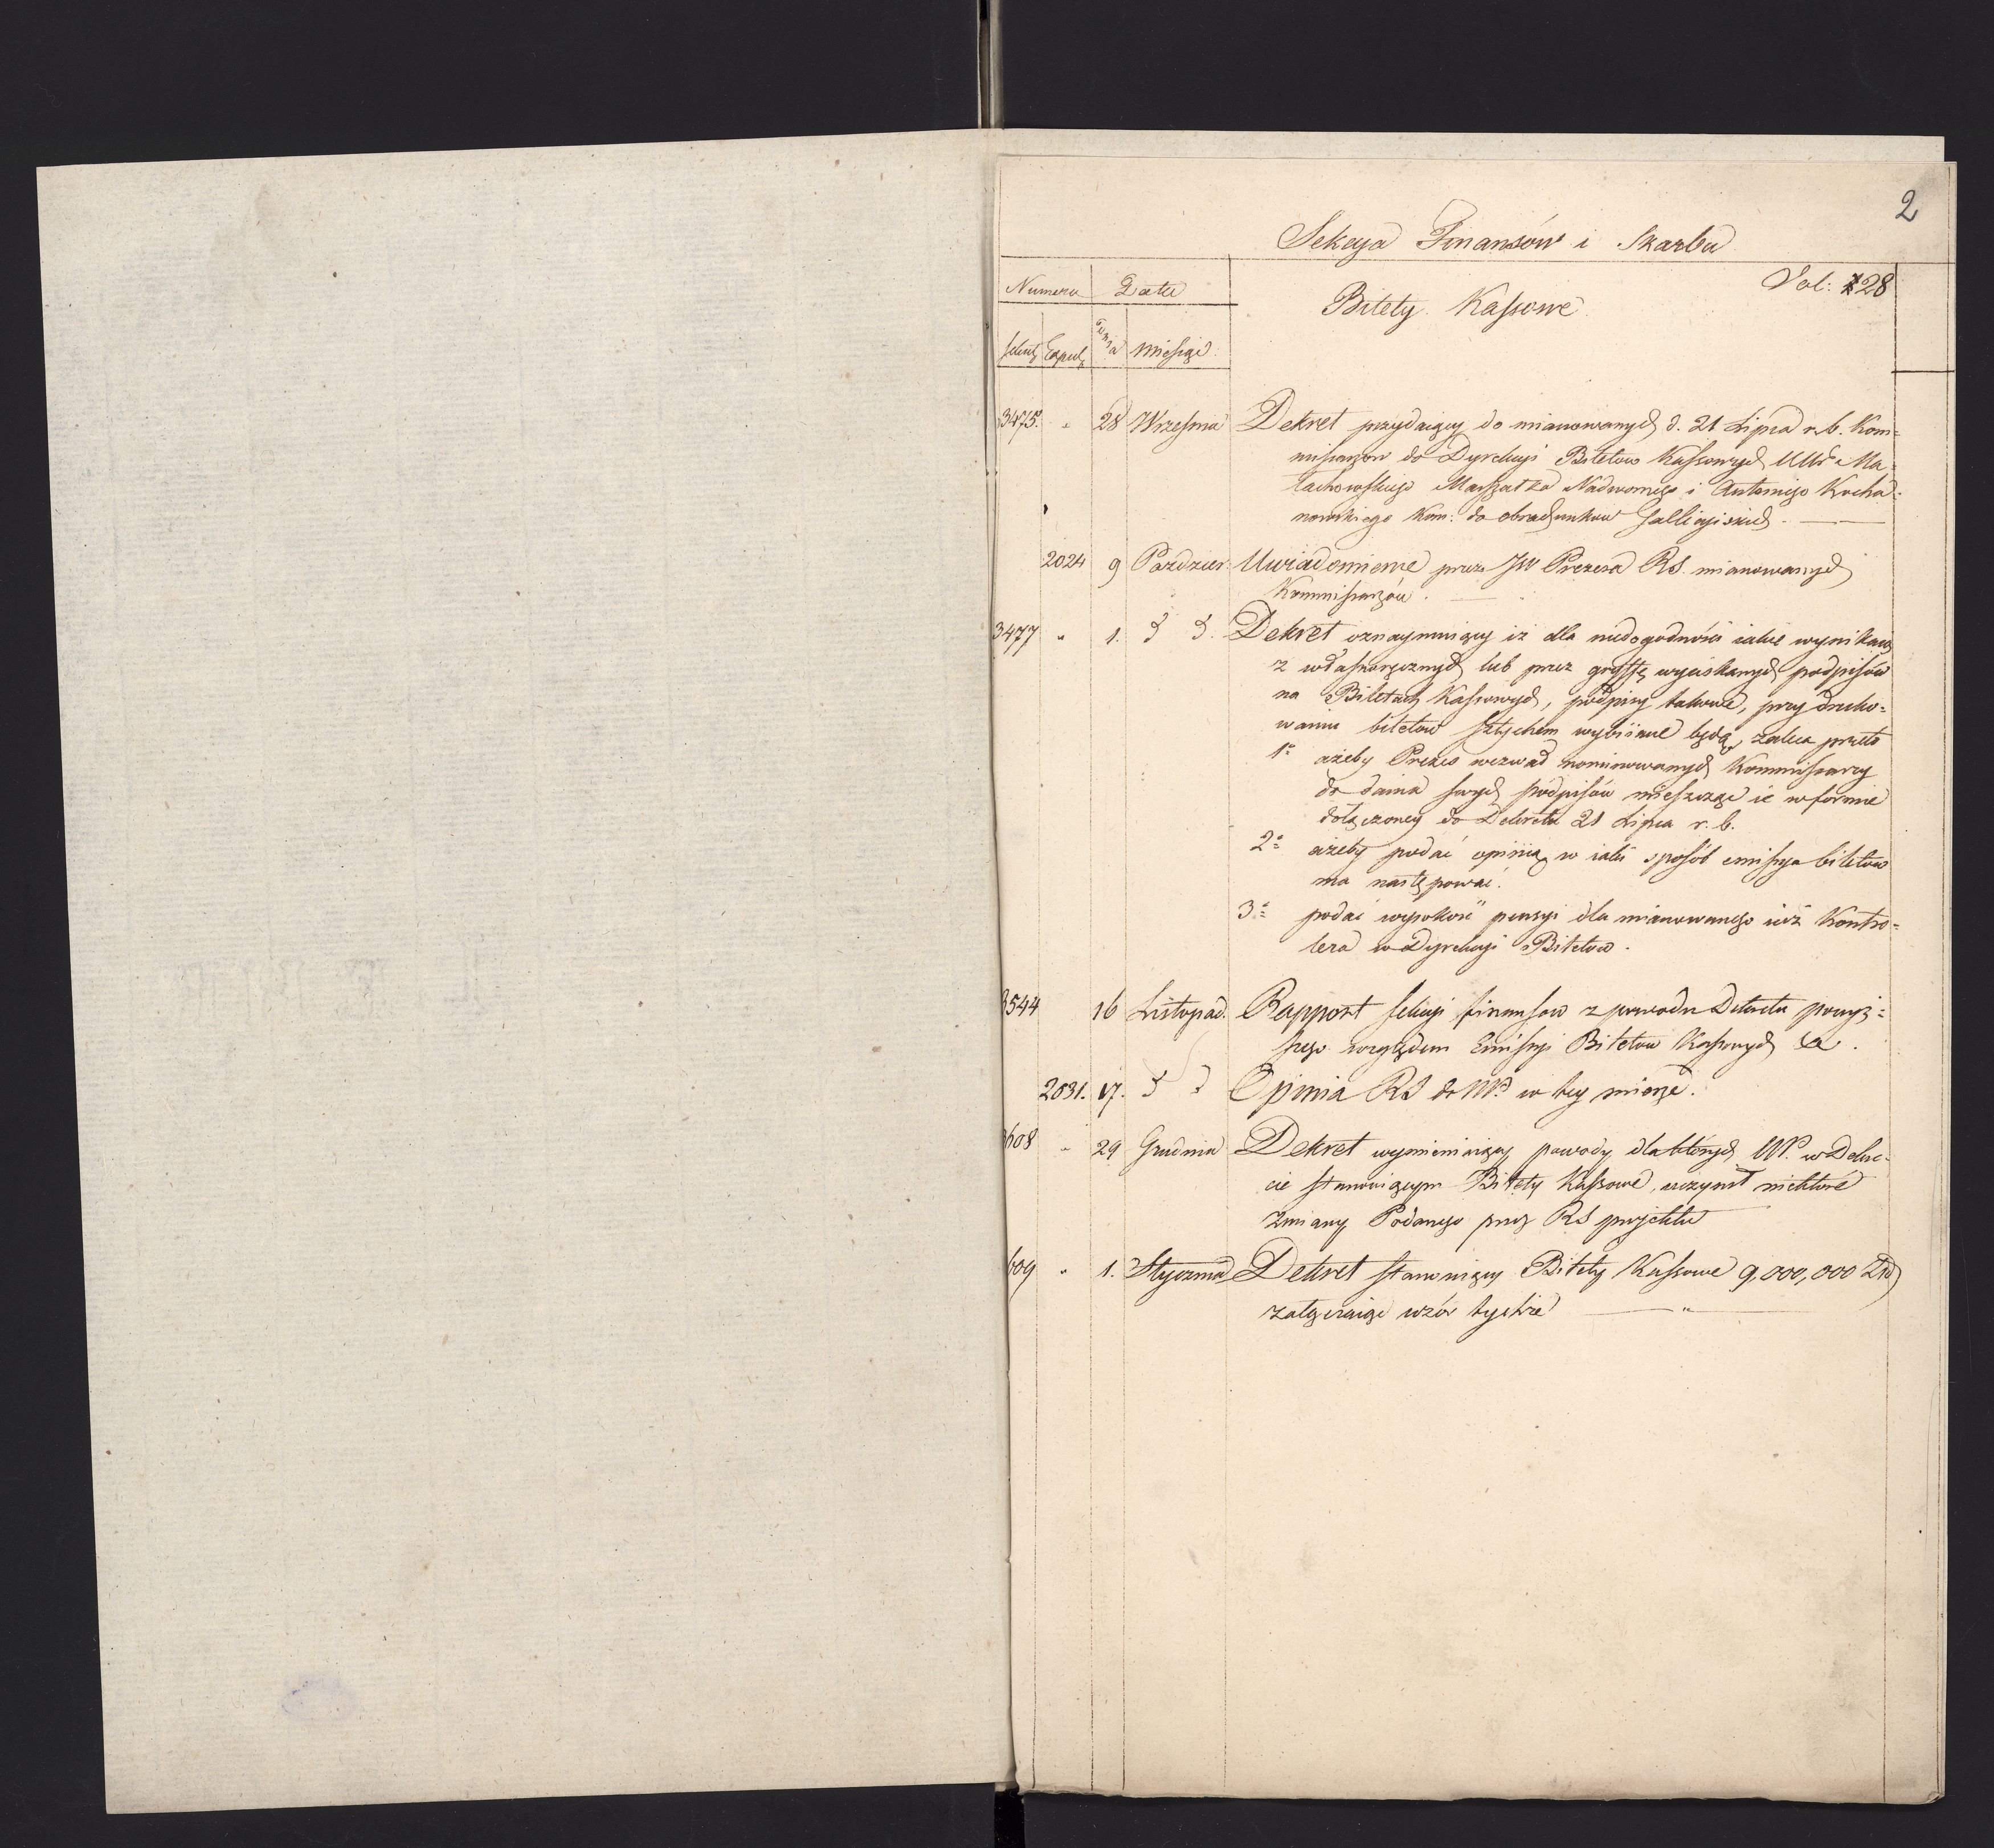 2
Sekcya Finansów i Skarbu
Numera Data
Vol: 28
Bilety Kassowe
Sekcyi Exped: Dnia miesiąc
3475. " 28 Września Dekret przydaiący do mianowanych d. 21 Lipca r. b. Kom=
missarzów do Dyrekcyi Biletow Kassowych Ma=
łachowskiego Marszałka Nadwornego i Antoniego Kocha=
nowskiego Kom: do obrachunkow Gallicyiskich.
2024 9 Paździer: Uwiadomienie przez JW Prezesa RS. mianowanych
Kommissarzów.
3477 " 1. d d. Dekret oznaymuiący iż dla niedogodności iakie wynikaią
z własnoręcznych lub przez gryffę wyciskanych podpisów
na Biletach Kassowych, podpisy takowe, przy druko=
waniu biletów sztychem wybiiane będą, zaleca przeto
1o ażeby Prezes wezwał nominowanych Kommissarzy
do dania swych podpisów mieszcząc ie w formie
dołączoney do Dekretu 21 Lipca r. b.
2o ażeby podać opinią w iaki sposób emissya biletow
ma następować.
3o podać wysokość pensyi dla mianowanego iuż Kontro=
lera w Dyrekcyi Biletow.
3544 16 Listopad. Rapport Sekcyi finansow z powodu Dekretu powyż=
szego względem Emissyi Biletow Kassowych &c.
2031. 17. d d Opinia RS do NP. w tey mierze.
3608 " 29 Grudnia Dekret wymieniaiący powody dla których NP. w Dekre=
cie stanowiącym Bilety Kassowe, uczynił niektóre
zmiany Podanego przez RS projektu
609 " 1. Stycznia Dekret stanowiący Bilety Kassowe 9,000,000 Złł
załączaiąc wzór tychże "